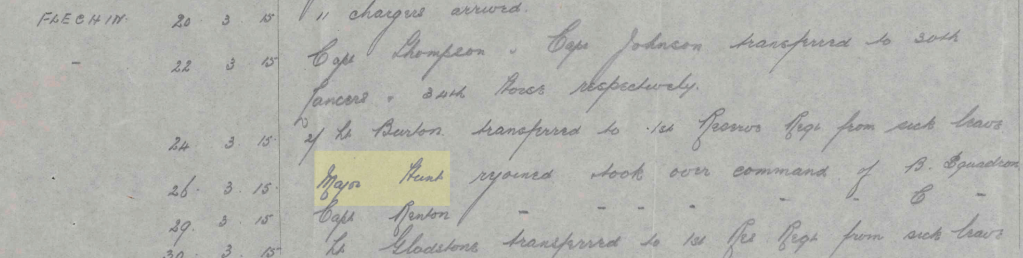 FLECHIN. 20 3 15 11 chargers arrived.
- 22 3 15 Capt Thompson & Capt Johnson transferred to 30th
Lancers & 34th Horse respectively.
24 3 15 2/ Lt Burton transferred to 1st Reserve Regt from sick leave
26. 3. 15. Major Hunt rejoined & took over command of B. Squadron
29. 3. 15 Capt Renton - - - - - - C -
30. 3. 15 Lt Gladstone transferred to 1st Res Regt from sick leave